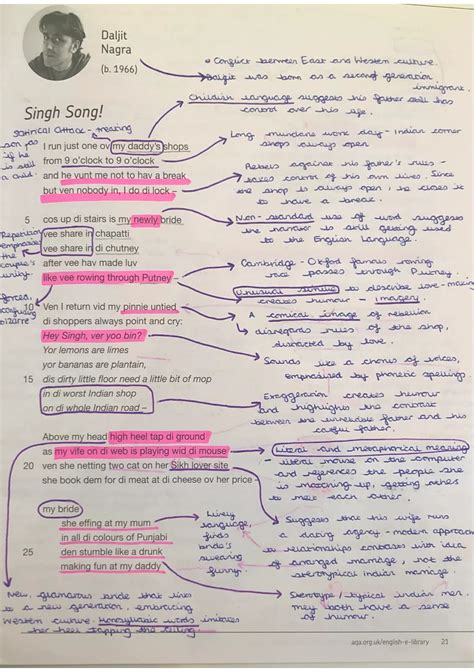 Daljit
Nagra
(b. 1966)
• Conflict between East and Western culture.
Daljit was born as a second generation
immigrant.
Singh Song!
Childish language suggests his father still has
control over his life.
satirical attack - treating
son as
if he
is still
a child.
I run just one ov my daddy's shops
from 9 o'clock to 9 o'clock
and he vunt me not to hav a break
but ven nobody in, I do di lock –
Long mundane work day - Indian corner
shops always open
Rebels against his father's rules -
takes control of his own lives. Since
the shop is always open, he closes it
to have a break.
5 cos up di stairs is my newly bride
vee share in chapatti
vee share in di chutney
after vee hav made luv
like vee rowing through Putney –
Repetition
emphasise
the
couple's
unity.
Non-standard use of word suggests
the narrator is still getting used
to the English Language.
Cambridge - Oxford famous rowing
race passes through Putney.
Unusual simile to describe love-making
creates humour - imagery
forced,
confusing
bizarre
10 Ven I return vid my pinnie untied
di shoppers always point and cry:
Hey Singh, ver yoo bin?
Yor lemons are limes
yor bananas are plantain,
15 dis dirty little floor need a little bit of mop
in di worst Indian shop
on di whole Indian road –
A comical image of rebellion
- disregards rules of the shop,
distracted by love.
Sounds like a chorus of voices,
emphasised by phonetic spellings.
Exaggeration creates humour
and highlights the contrast
between the unreliable father and his
careful father.
Above my head high heel tap di ground
as my vife on di web is playing wid di mouse
20 ven she netting two cat on her Sikh lover site
she book dem for di meat at di cheese ov her price –
Literal and metaphorical meaning
- literal mouse on the computer
and references the people she
is matching up, getting others
to meet each other.
my bride
she effing at my mum
in all di colours of Punjabi
25 den stumble like a drunk
making fun at my daddy
Lively
language,
finds
bride's
swearing
funny.
Suggests that his wife runs
a dating agency - modern approach
to relationships contrasts with idea
of arranged marriage, not the
stereotypical indian marriage.
Stereotype / typical indian men.
they both have a sense
of humour.
New, glamorous bride that links
to a new generation, embracing
Western culture. Monosyllabic words imitates
her heel tapping the ceiling
aqa.org.uk/english-e-library 21